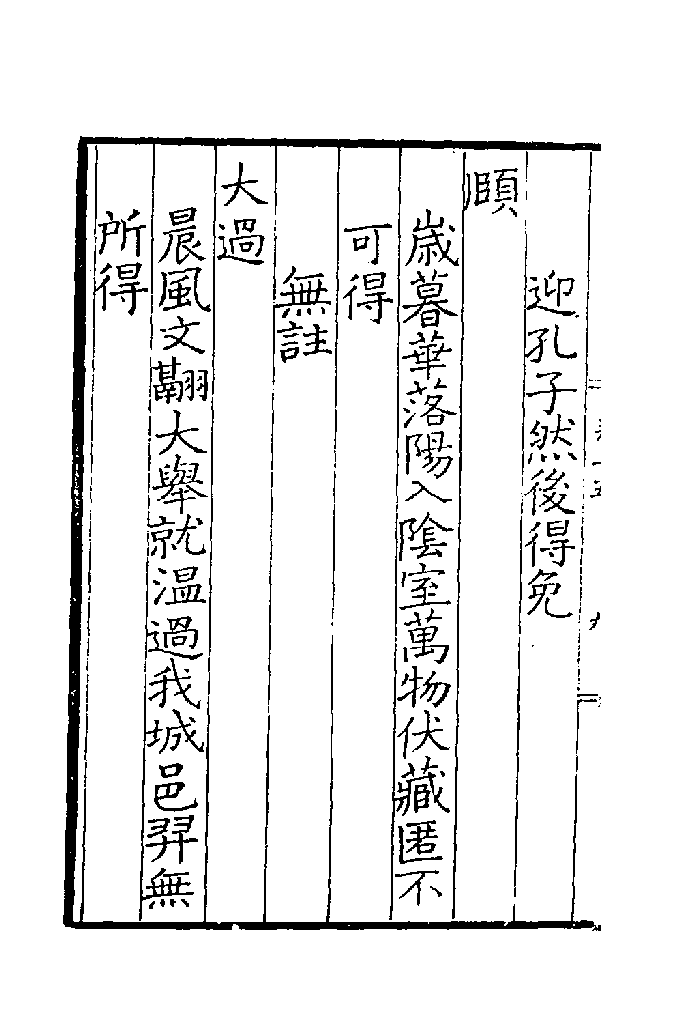 迎孔子然後得免
頤
歳暮華落陽入陰室萬物伏藏匿不
可得
無註
大過
晨風文翩大舉就温過我城邑羿無
所得